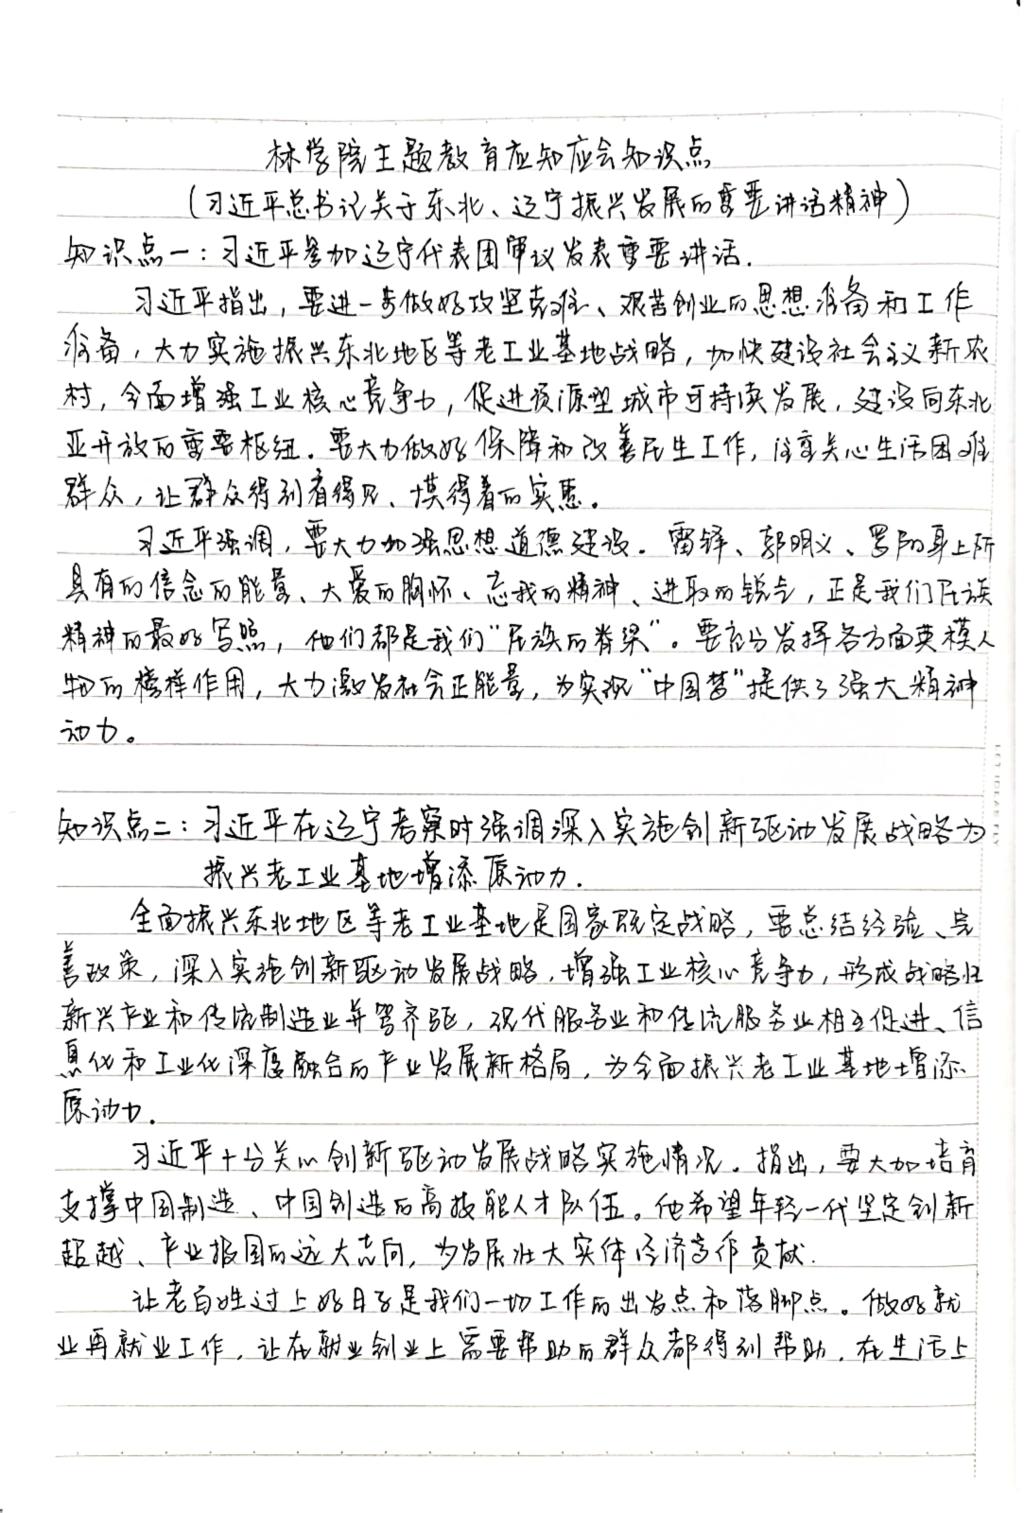 林学院主题教育应知应会知识点
(习近平总书记关于东北、辽宁振兴发展的重要讲话精神)
知识点一:习近平参加辽宁代表团审议发表重要讲话.
习近平指出,要进一步做好攻坚克难、艰苦创业的思想准备和工作
准备,大力实施振兴东北地区等老工业基地战略,加快建设社会主义新农
村,全面增强工业核心竞争力,促进资源型城市可持续发展,建设向东北
亚开放的重要枢纽.要大力做好保障和改善民生工作,注重关心生活困难
群众,让群众得到看得见、摸得着的实惠。
习近平强调,要大力加强思想道德建设.雷锋、郭明义、罗阳身上所
具有的信念的能量、大爱的胸怀、忘我的精神、进取的锐气,正是我们民族
精神的最好写照,他们都是我们“民族的脊梁”。要充分发挥各方面英模人
物的榜样作用,大力激发社会正能量,为实现“中国梦”提供了强大精神
动力。
知识点二:习近平在辽宁考察时强调深入实施创新驱动发展战略为
振兴老工业基地增添原动力.
全面振兴东北地区等老工业基地是国家既定战略,要总结经验、完
善政策,深入实施创新驱动发展战略,增强工业核心竞争力,形成战略性
新兴产业和传统制造业并驾齐驱,现代服务业和传统服务业相互促进、信
息化和工业化深度融合的产业发展新格局,为全面振兴老工业基地增添
原动力.
习近平十分关心创新驱动发展战略实施情况.指出,要大加培育
支撑中国制造、中国创造的高技能人才队伍。他希望年轻一代坚定创新
超越、产业报国的远大志向,为发展壮大实体经济多作贡献.
让老百姓过上好日子是我们一切工作的出发点和落脚点。做好就
业再就业工作,让在就业创业上需要帮助的群众都得到帮助.在生活上